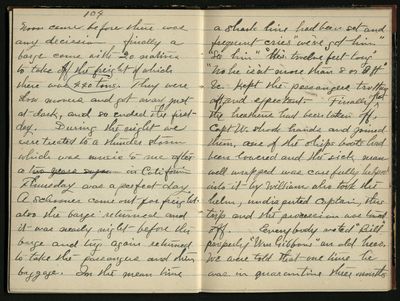 109
Noon came before there was
any decision finally a
barge came with 20 natives
to take off the freight of which
there was 220 tons. They were
slow movers and got away just
at dark, and so ended the first
day. During the night we
were treated to a thunder storm
which was music to me after
a two years in California
Thursday was a perfect day
A schooner came out for freight
also the barge returned and
it was nearly night before the
barge and tug again returned
to take the passengers and their
baggage. In the mean time
a shark line had been set and
frequent cries "we've got him"
"see him" "he's twelve feet long"
"no he isn't more than 8 or 9 ft"
&c. kept the passengers trotting
off and expectant. Finally, that
the heathens had been taken off,
Capt W. shook hands and joined
them, one of the ships boats had
been lowered and the sick man
well wrapped was carefully helped
into it by William who took the
helm, undisputed captain, this
trip and the procession was lined
off. Everybody voted "Bill"
properly "Wm Gibbons" an old hero.
We were told that one time he
was in quarantine three months